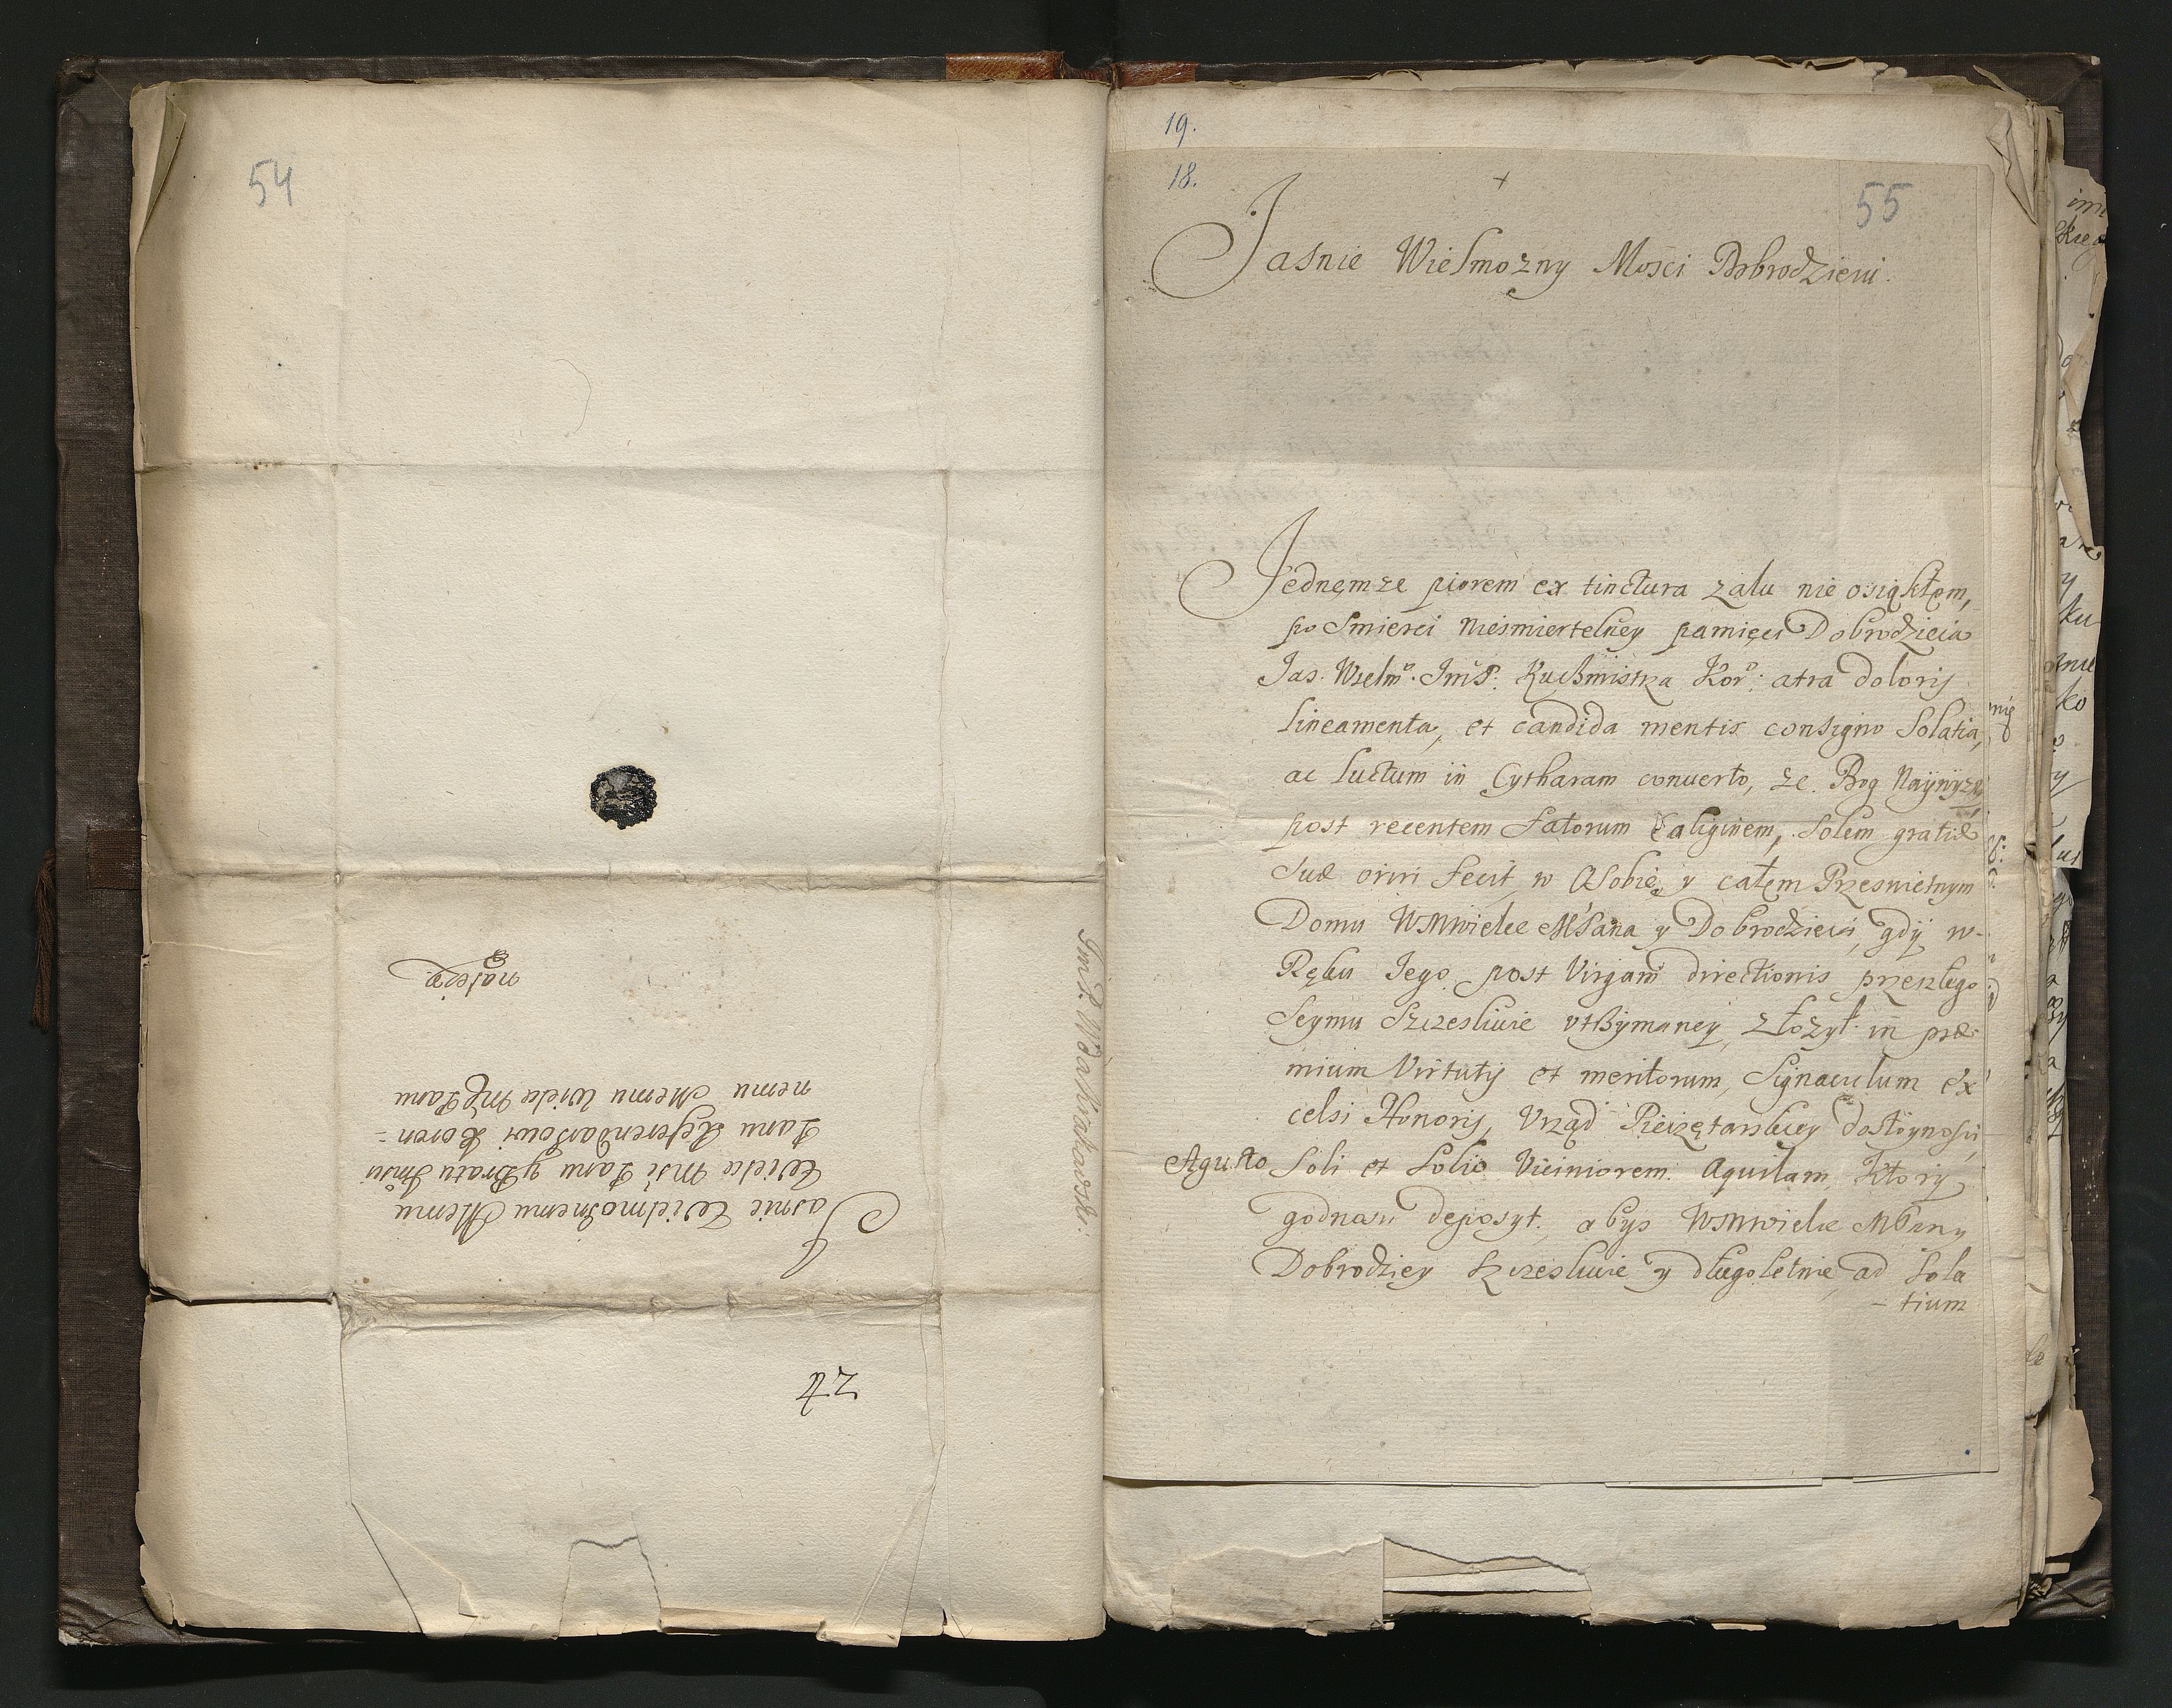 54
należy
Jasnie Wielmożnemu Memu
Wielce Mści Panu y Bratu Jmści
Panu Referendarzowi Koron=
nemu Memu Wielce Mę Panu
24
Jm P. Wda Krakowski:
19.
18.
55
Jasnie Wielmozny Mosci Dobrodzieiu.
Jednęmze piorem ex tinctura zalu nie osiąkłem,
po Smierci Niesmiertelney pamięci Dobrodzieia
Jas. Wielmo. JmP. Kuchmistrza Kor: atra doloris
lineamenta, et candida mentis consigno Solatia,
ac luctum in Cytharam conuerto, ze Bog Naywyzszy
post recentem fatorum Caliginem, Solem gratiæ
Suæ oriri fecit, w Osobie y całem Przeswietnym
Domu WMwielce MPana y Dobrodzieia, gdy w
Ręku Jego post Virgam directionis przeszłego
Seymu Szczesliwie vtrzymaney, złozył in præ
mium Virtutis et meritorum, Signaculum Ex
celsi Honoris, Vrząd Pieczętarskiey dostoynosci,
Agusto Soli et Solio Viciniorem Aquilam, ktory
godnasci deposyt. abys WMwielce MPany
Dobrodziey szczesliwie y długoletnie ad Sola
-tium